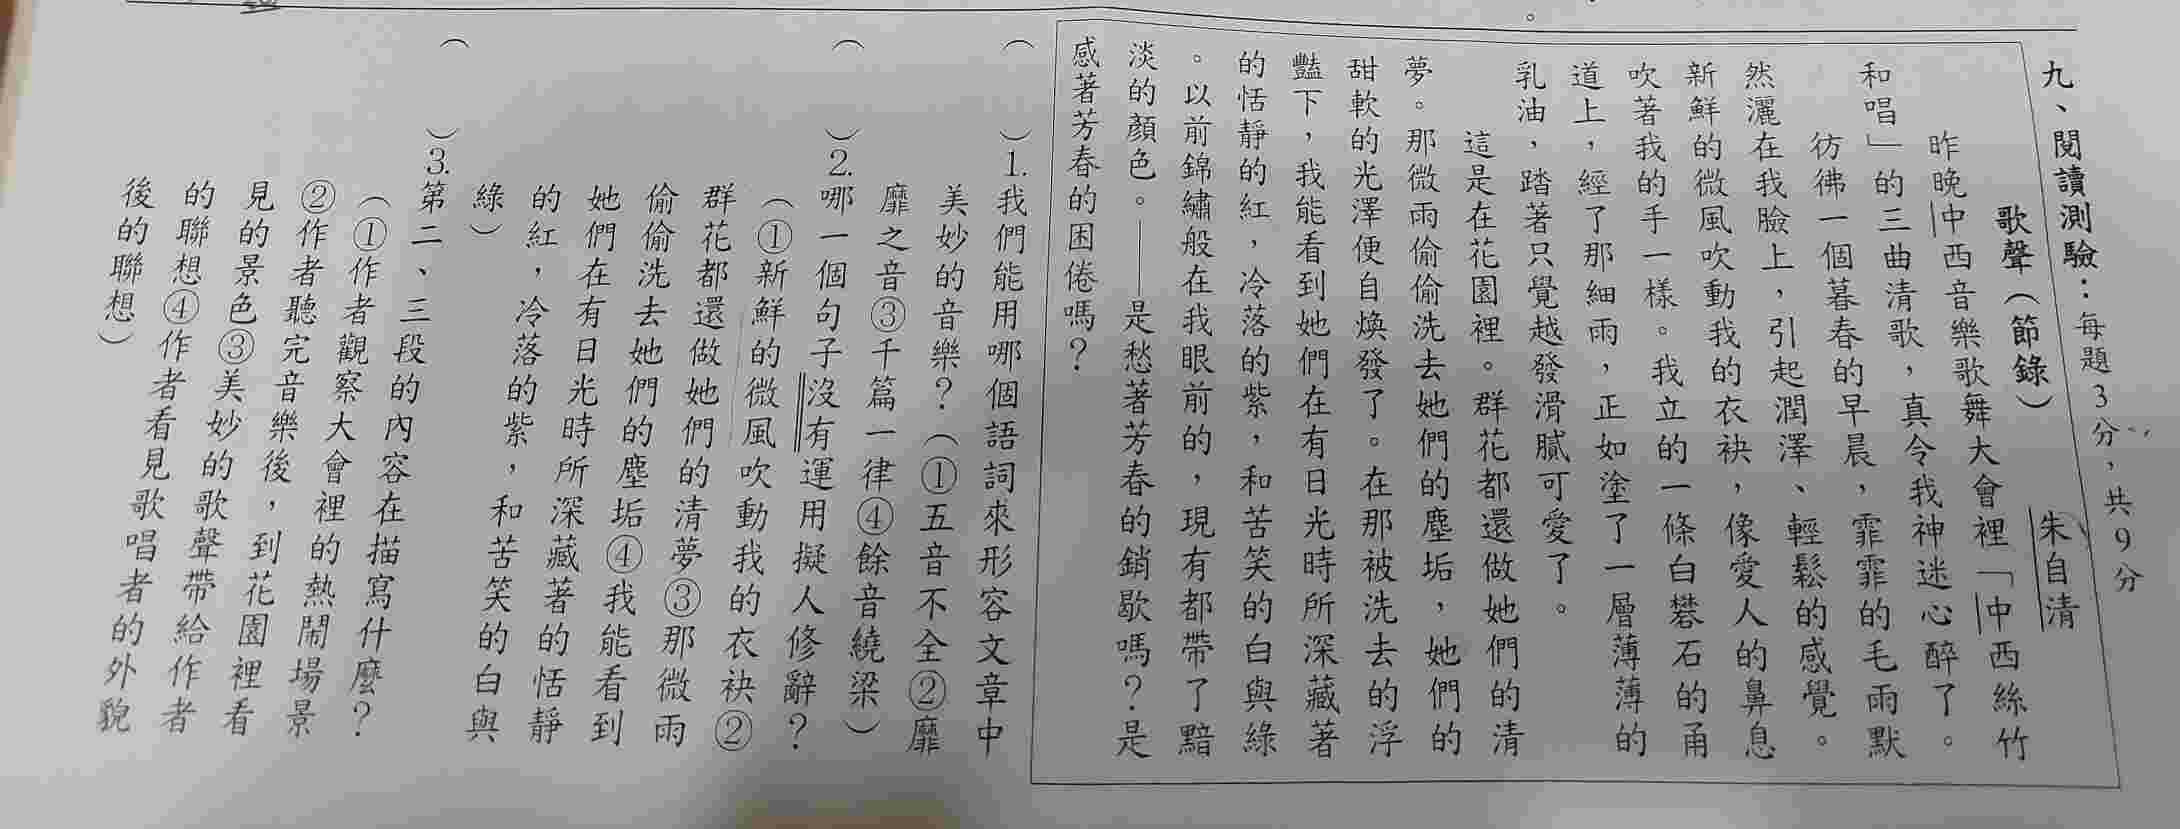 九、閱讀測驗：每題3分，共9分
歌聲（節錄）　朱自清
昨晚中西音樂歌舞大會裡「中西絲竹
和唱」的三曲清歌，真令我神迷心醉了。
彷彿一個暮春的早晨，霏霏的毛雨默
然灑在我臉上，引起潤澤、輕鬆的感覺。
新鮮的微風吹動我的衣袂，像愛人的鼻息
吹著我的手一樣。我立的一條白礬石的甬
道上，經了那細雨，正如塗了一層薄薄的
乳油，踏著只覺越發滑膩可愛了。
這是在花園裡。群花都還做她們的清
夢。那微雨偷偷洗去她們的塵垢，她們的
甜軟的光澤便自煥發了。在那被洗去的浮
豔下，我能看到她們在有日光時所深藏著
的恬靜的紅，冷落的紫，和苦笑的白與綠
。以前錦繡般在我眼前的，現有都帶了黯
淡的顏色。——是愁著芳春的銷歇嗎？是
感著芳春的困倦嗎？
（　　）1.我們能用哪個語詞來形容文章中
美妙的音樂？（①五音不全②靡
靡之音③千篇一律④餘音繞梁）
（　　）2.哪一個句子沒有運用擬人修辭？
（①新鮮的微風吹動我的衣袂②
群花都還做她們的清夢③那微雨
偷偷洗去她們的塵垢④我能看到
她們在有日光時所深藏著的恬靜
的紅，冷落的紫，和苦笑的白與
綠）
（　　）3.第二、三段的內容在描寫什麼？
（①作者觀察大會裡的熱鬧場景
②作者聽完音樂後，到花園裡看
見的景色③美妙的歌聲帶給作者
的聯想④作者看見歌唱者的外貌
後的聯想）